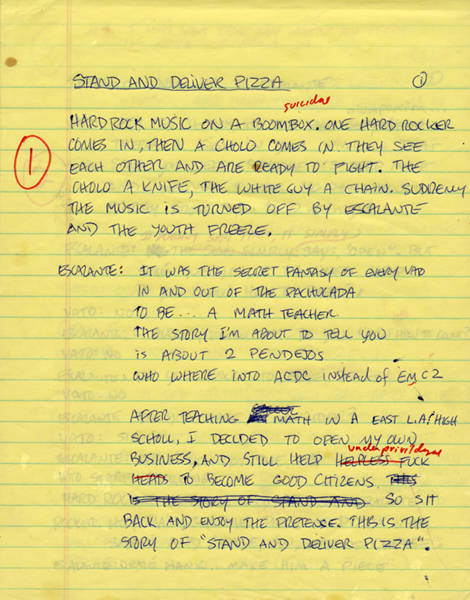 STAND AND DELIVER PIZZA ①
suicidas
HARD ROCK MUSIC ON A BOOMBOX. ONE HARD ROCKER
1
COMES IN, THEN A CHOLO COMES IN. THEY SEE
EACH OTHER AND ARE READY TO FIGHT. THE
CHOLO A KNIFE, THE WHITE GUY A CHAIN. SUDDENLY
THE MUSIC IS TURNED OFF BY ESCALANTE
AND THE YOUTH FREEZE.
ESCALANTE: IT WAS THE SECRET FANTASY OF EVERY VATO
IN AND OUT OF THE PACHUCADA
TO BE... A MATH TEACHER
THE STORY I'M ABOUT TO TELL YOU
IS ABOUT 2 PENDEJOS
WHO WHERE INTO ACDC INSTEAD OF EMC2
AFTER TEACHING MATH IN A EAST L.A. HIGH
SCHOLL, I DECIDED TO OPEN MY OWN
underprivileges
BUSINESS, AND STILL HELP HELPLESS FUCK
HEADS TO BECOME GOOD CITIZENS. THIS
IS THE STORY OF STAND AND SO SIT
BACK AND ENJOY THE PRETENCE. THIS IS THE
STORY OF "STAND AND DELIVER PIZZA".